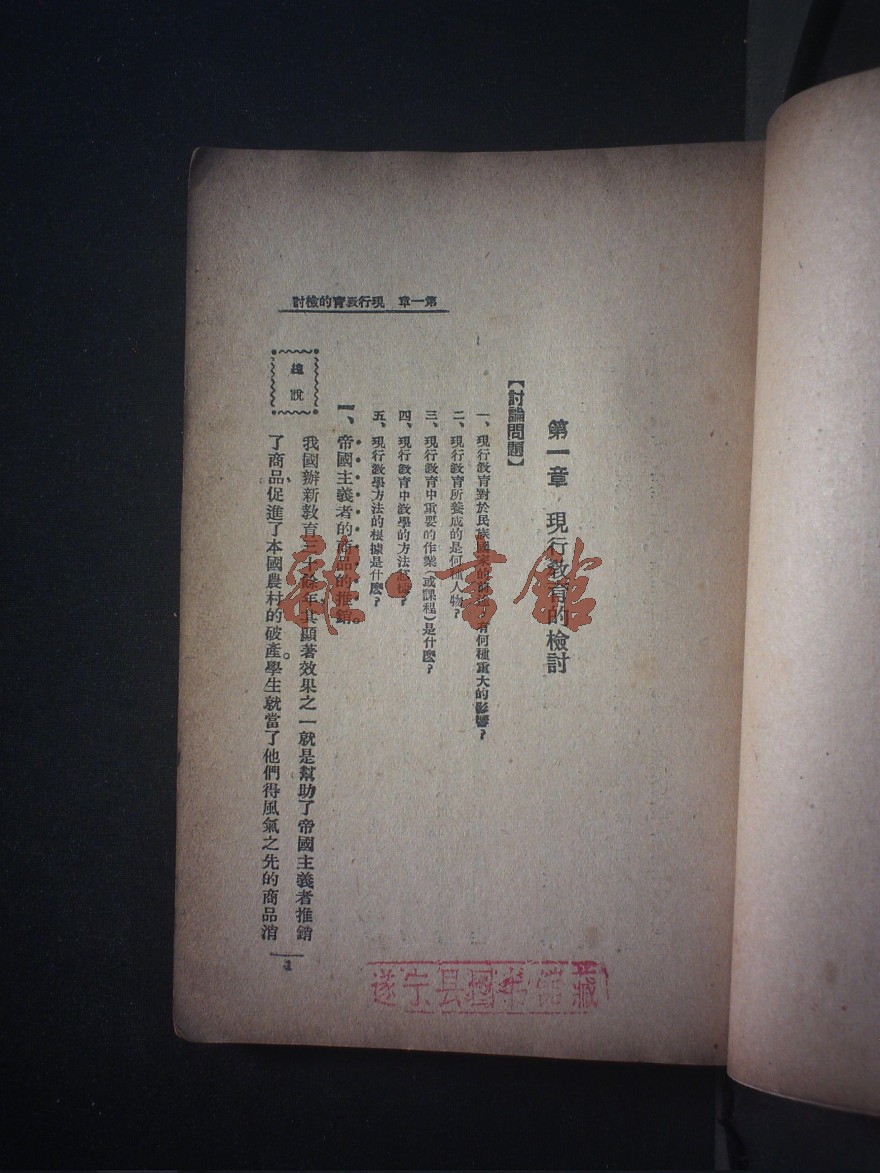 第一章 現行教育的檢討
第一章 現行教育的檢討
【討論問題】
一、現行教育對於民族國家的 有何種重大的影響？
二、現行教育所養成的是何種人物？
三、現行教育中重要的作業（或課程）是什麽？
四、現行教育中教學的方法怎樣？
五、現行教學方法的根據是什麽？
一、帝國主義者的商品的推銷。
總說
我國辦新教育三十餘年、其顯著效果之一就是幫助了帝國主義者推銷
了商品、促進了本國農村的破產。學生就當了他們得風氣之先的商品消
1
雜·書館
遂宁县圖书馆藏